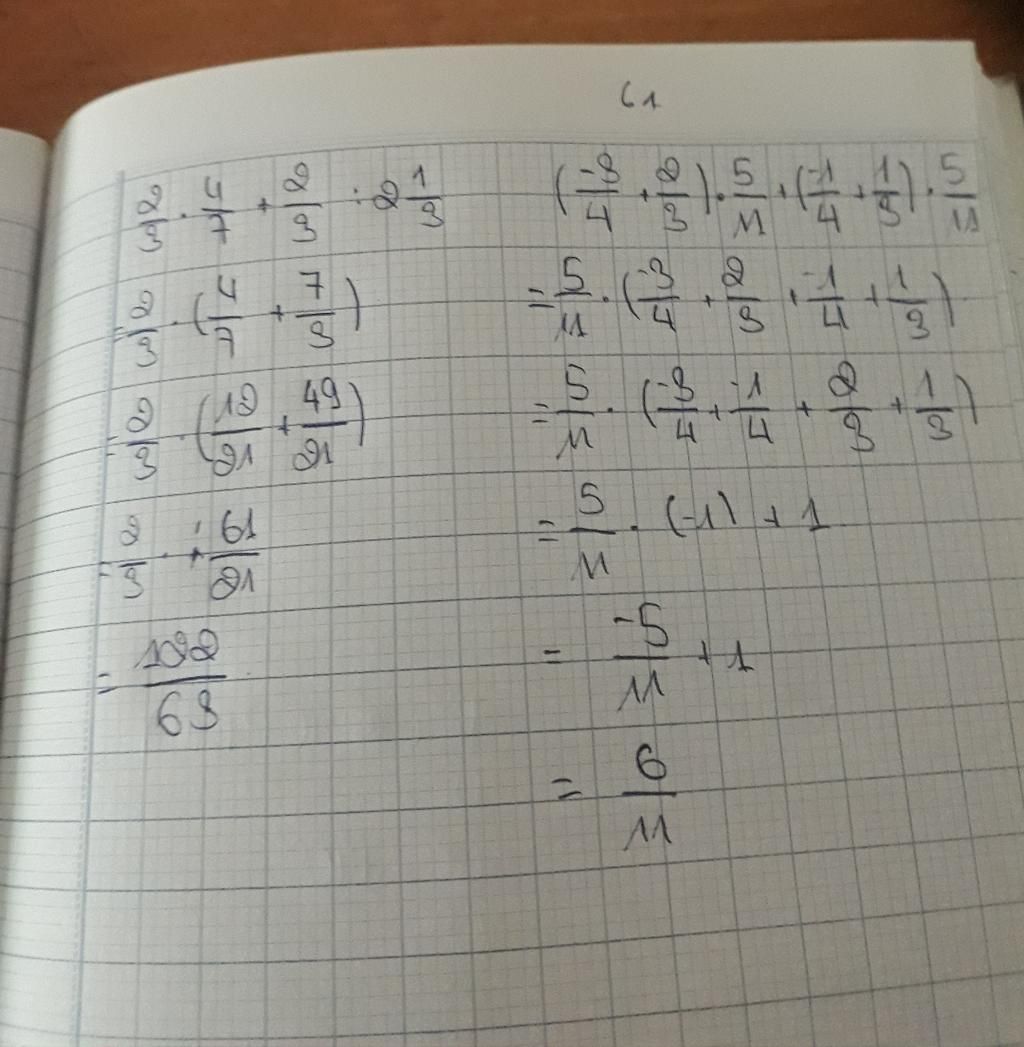 61
2/3 . 4/7 + 2/3 : 2 1/3
= 2/3 . (4/7 + 7/3)
= 2/3 . (12/21 + 49/21)
= 2/3 . 61/21
= 122/63
(-3/4 + 2/3) . 5/11 + (-1/4 + 1/3) . 5/11
= 5/11 . (-3/4 + 2/3 + -1/4 + 1/3)
= 5/11 . (-3/4 + -1/4 + 2/3 + 1/3)
= 5/11 . (-1) + 1
= -5/11 + 1
= 6/11